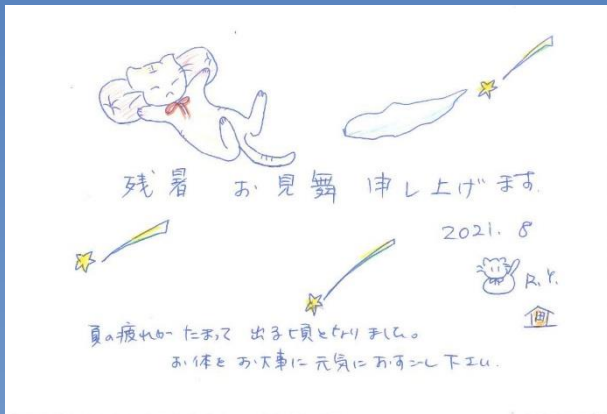 残暑 お見舞 申し上げます.
2021. 8
R.Y.
夏の疲れが たまって 出る頃となりました。
お体を お大事に 元気に おすごし 下さい.